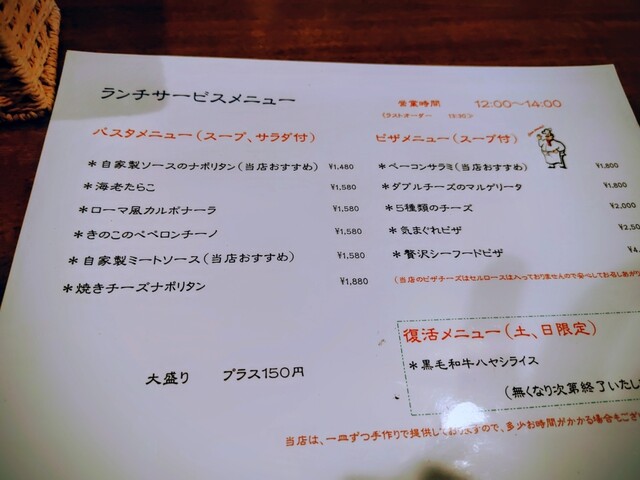 ランチサービスメニュー
営業時間 12:00～14:00
(ラストオーダー 13:30)
パスタメニュー(スープ、サラダ付)
*自家製ソースのナポリタン(当店おすすめ) ¥1,480
*海老たらこ ¥1,580
*ローマ風カルボナーラ ¥1,580
*きのこのペペロンチーノ ¥1,580
*自家製ミートソース(当店おすすめ) ¥1,580
*焼きチーズナポリタン ¥1,880
大盛り プラス150円
ピザメニュー(スープ付)
*ベーコンサラミ(当店おすすめ) ¥1,800
*ダブルチーズのマルゲリータ ¥1,800
*5種類のチーズ ¥2,000
*気まぐれピザ ¥2,50
*贅沢シーフードピザ ¥4,
(当店のピザチーズはセルロースは入っておりませんので安心してお召しあがり
復活メニュー(土、日限定)
*黒毛和牛ハヤシライス
(無くなり次第終了いたし
当店は、一皿ずつ手作りで提供しておりますので、多少お時間がかかる場合もござ